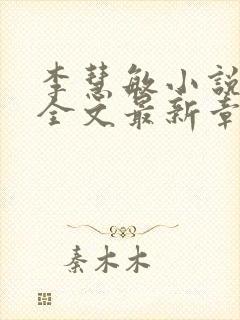 李慧敏小说
全文最新章
秦木木